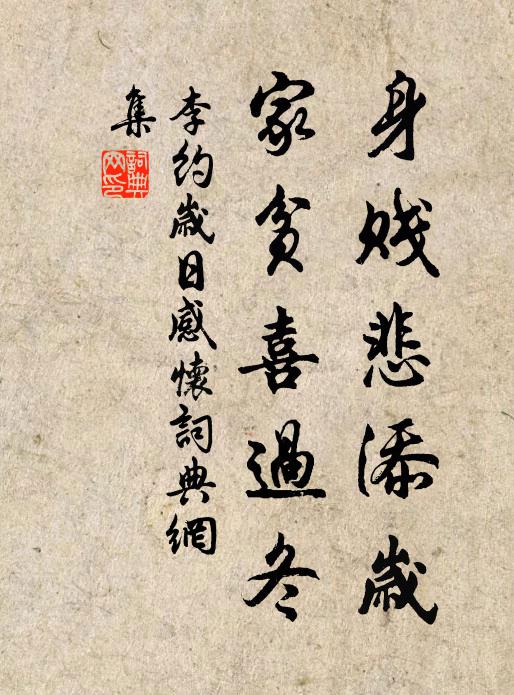 身賤悲添歲
家貧喜過冬
李約歲日感懷詞典網
集
詞典
网印